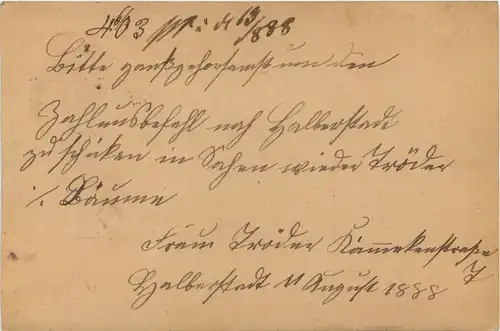 4603 13/888
Bitte ganßgehorsamst um den
Zahlunsbefehl nach Halberstadt
zu schicken in Sachen wieder Tröder
Bäume
Frau Tröder Kämmekenstraße
7
Halberstadt 11 August 1888